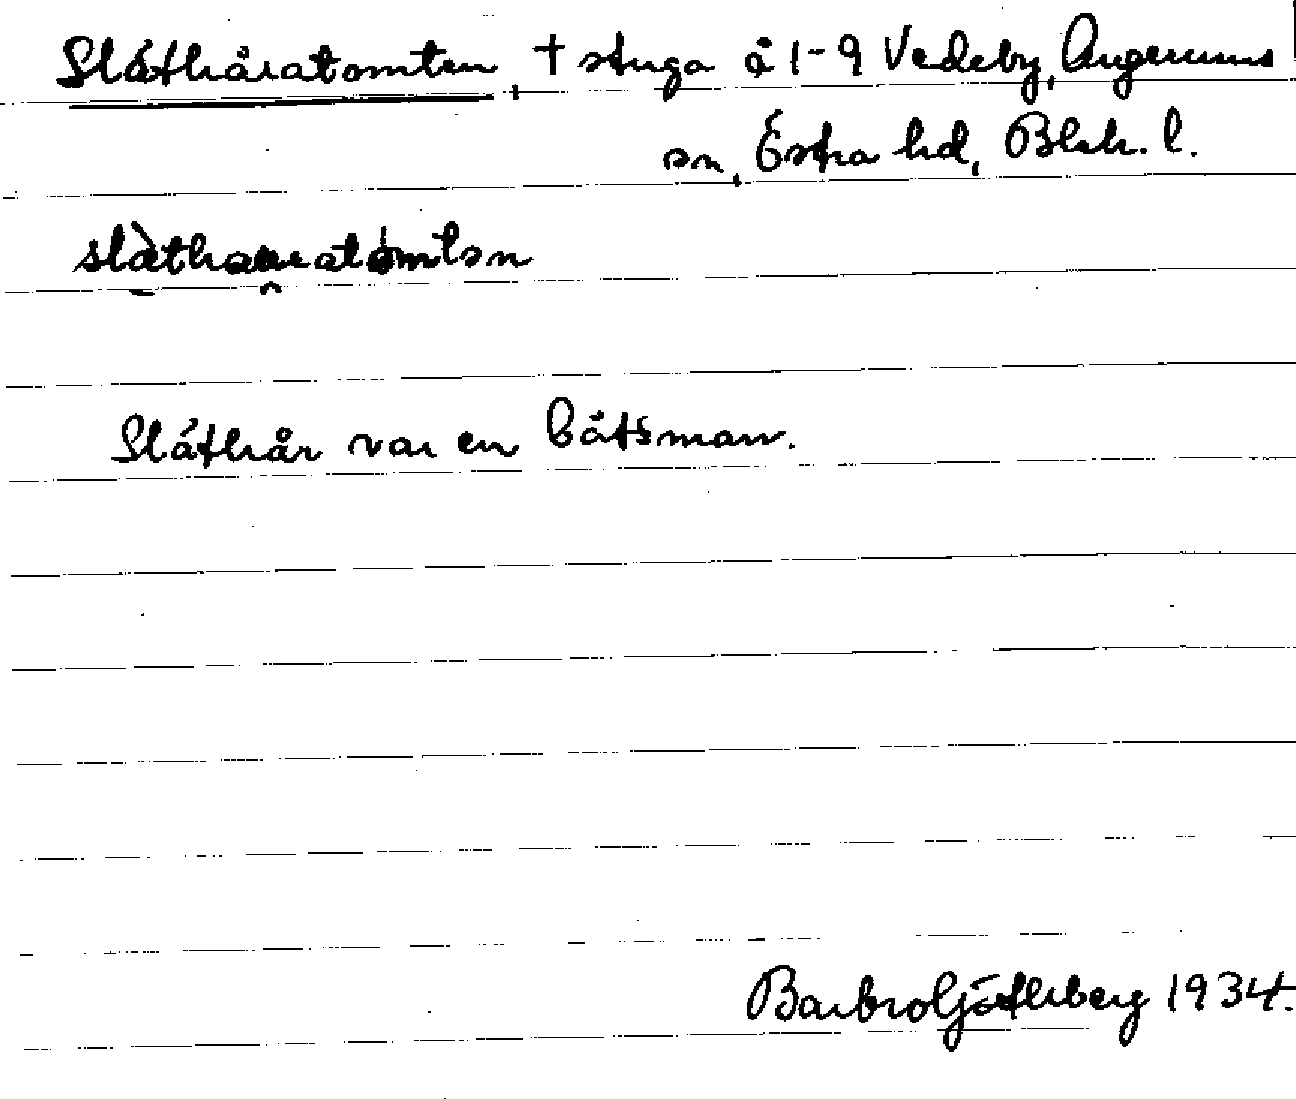 Släthåratomten, † stuga å 1-9 Vedeby, Augerums
sn, Östra hd, Blek. l.
slàthaaratòmtən
Släthår var en båtsman.
Barbro Ljötterberg 1934.